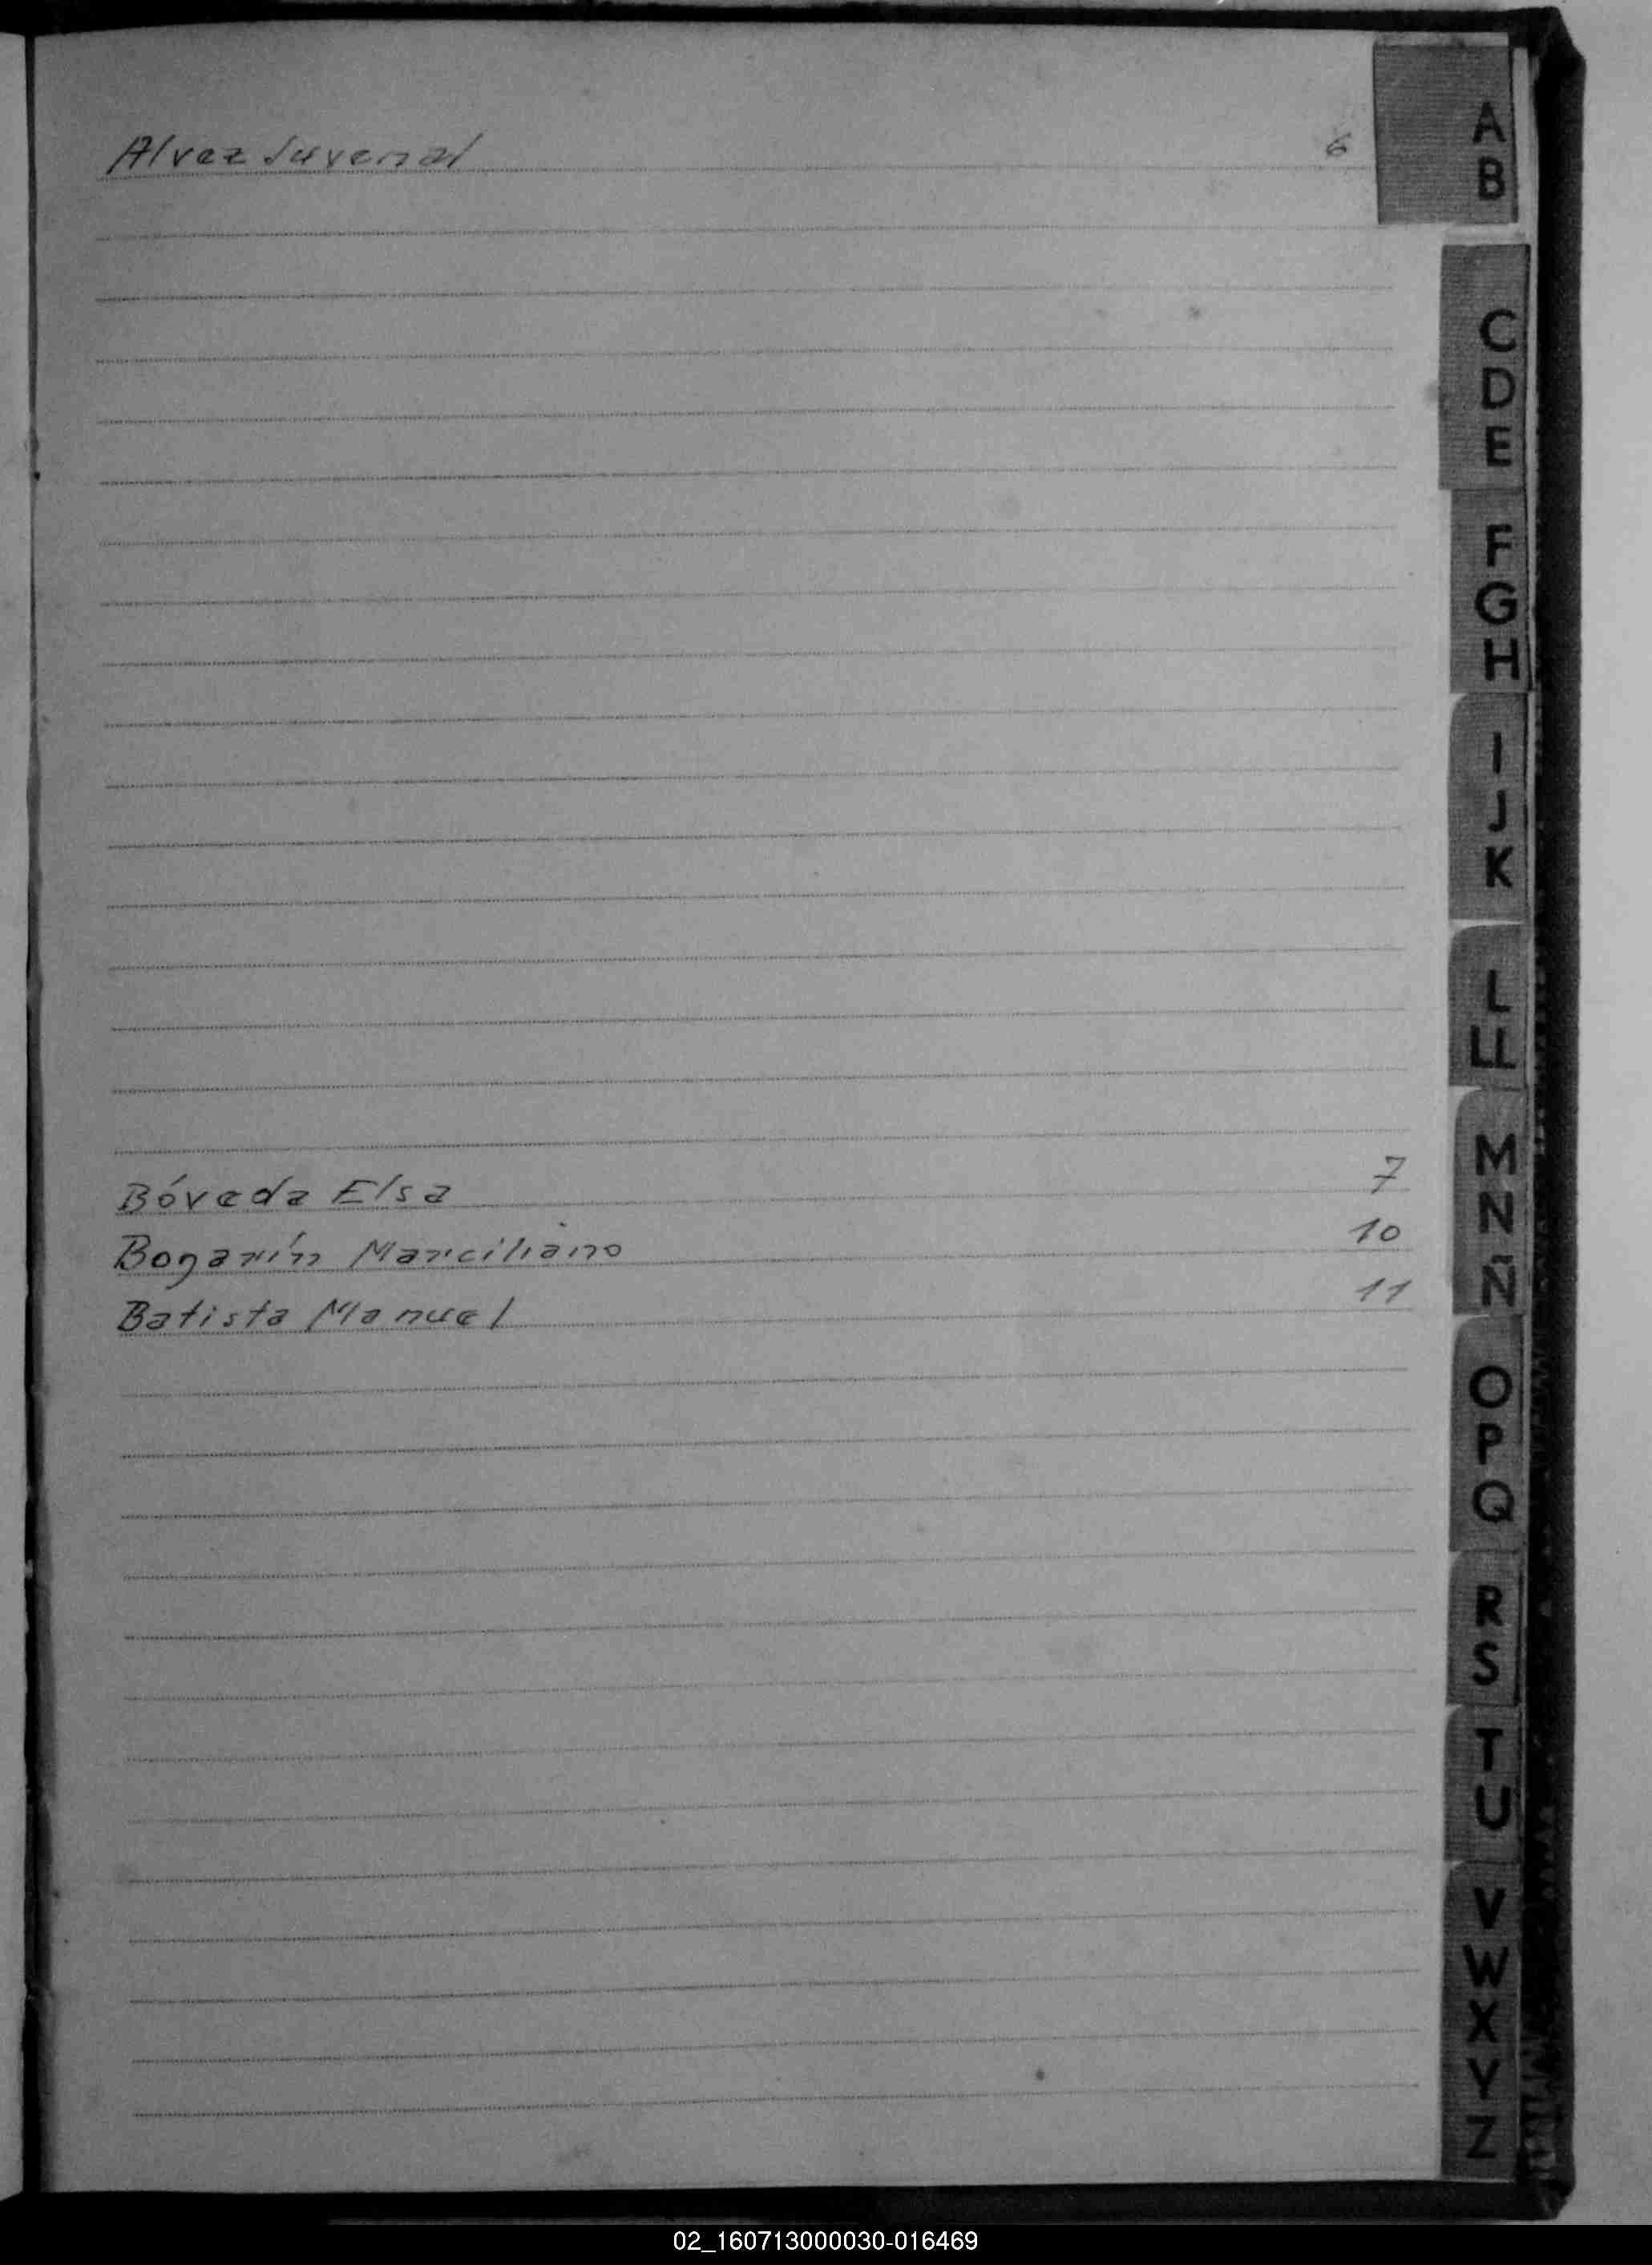 Alvez Juvenal 6
Bóveda Elsa 7
Bogarín Marciliano 10
Batista Manuel 11
A
B
C
D
E
F
G
H
I
J
K
L
LL
M
N
Ñ
O
P
Q
R
S
T
U
V
W
X
Y
Z
02_160713000030-016469